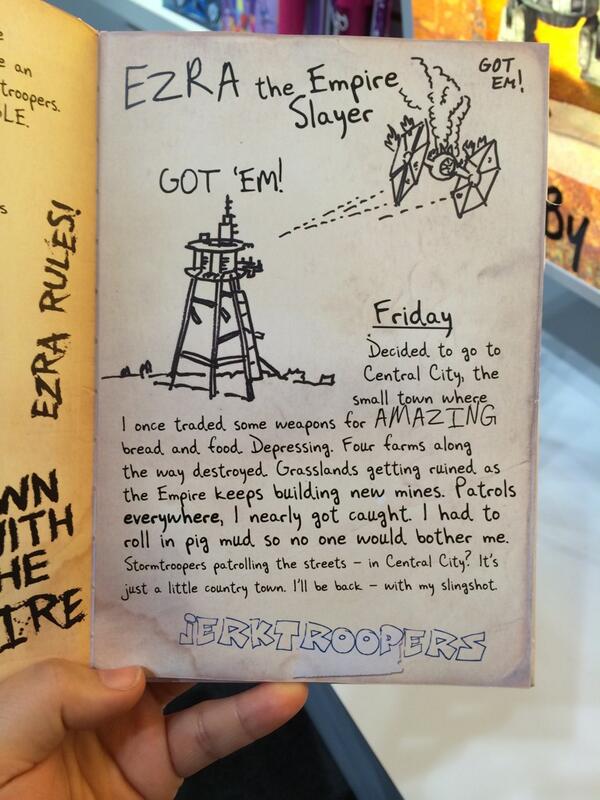 e
e an
troopers.
LE.
s
EZRA RULES!
WN
WITH
HE
IRE
EZRA the Empire
Slayer
GOT
EM!
GOT 'EM!
Friday
Decided to go to
Central City, the
small town where
I once traded some weapons for AMAZING
bread and food. Depressing. Four farms along
the way destroyed. Grasslands getting ruined as
the Empire keeps building new mines. Patrols
everywhere, I nearly got caught. I had to
roll in pig mud so no one would bother me.
Stormtroopers patrolling the streets – in Central City? It's
just a little country town. I'll be back – with my slingshot.
JERKTROOPERS
By